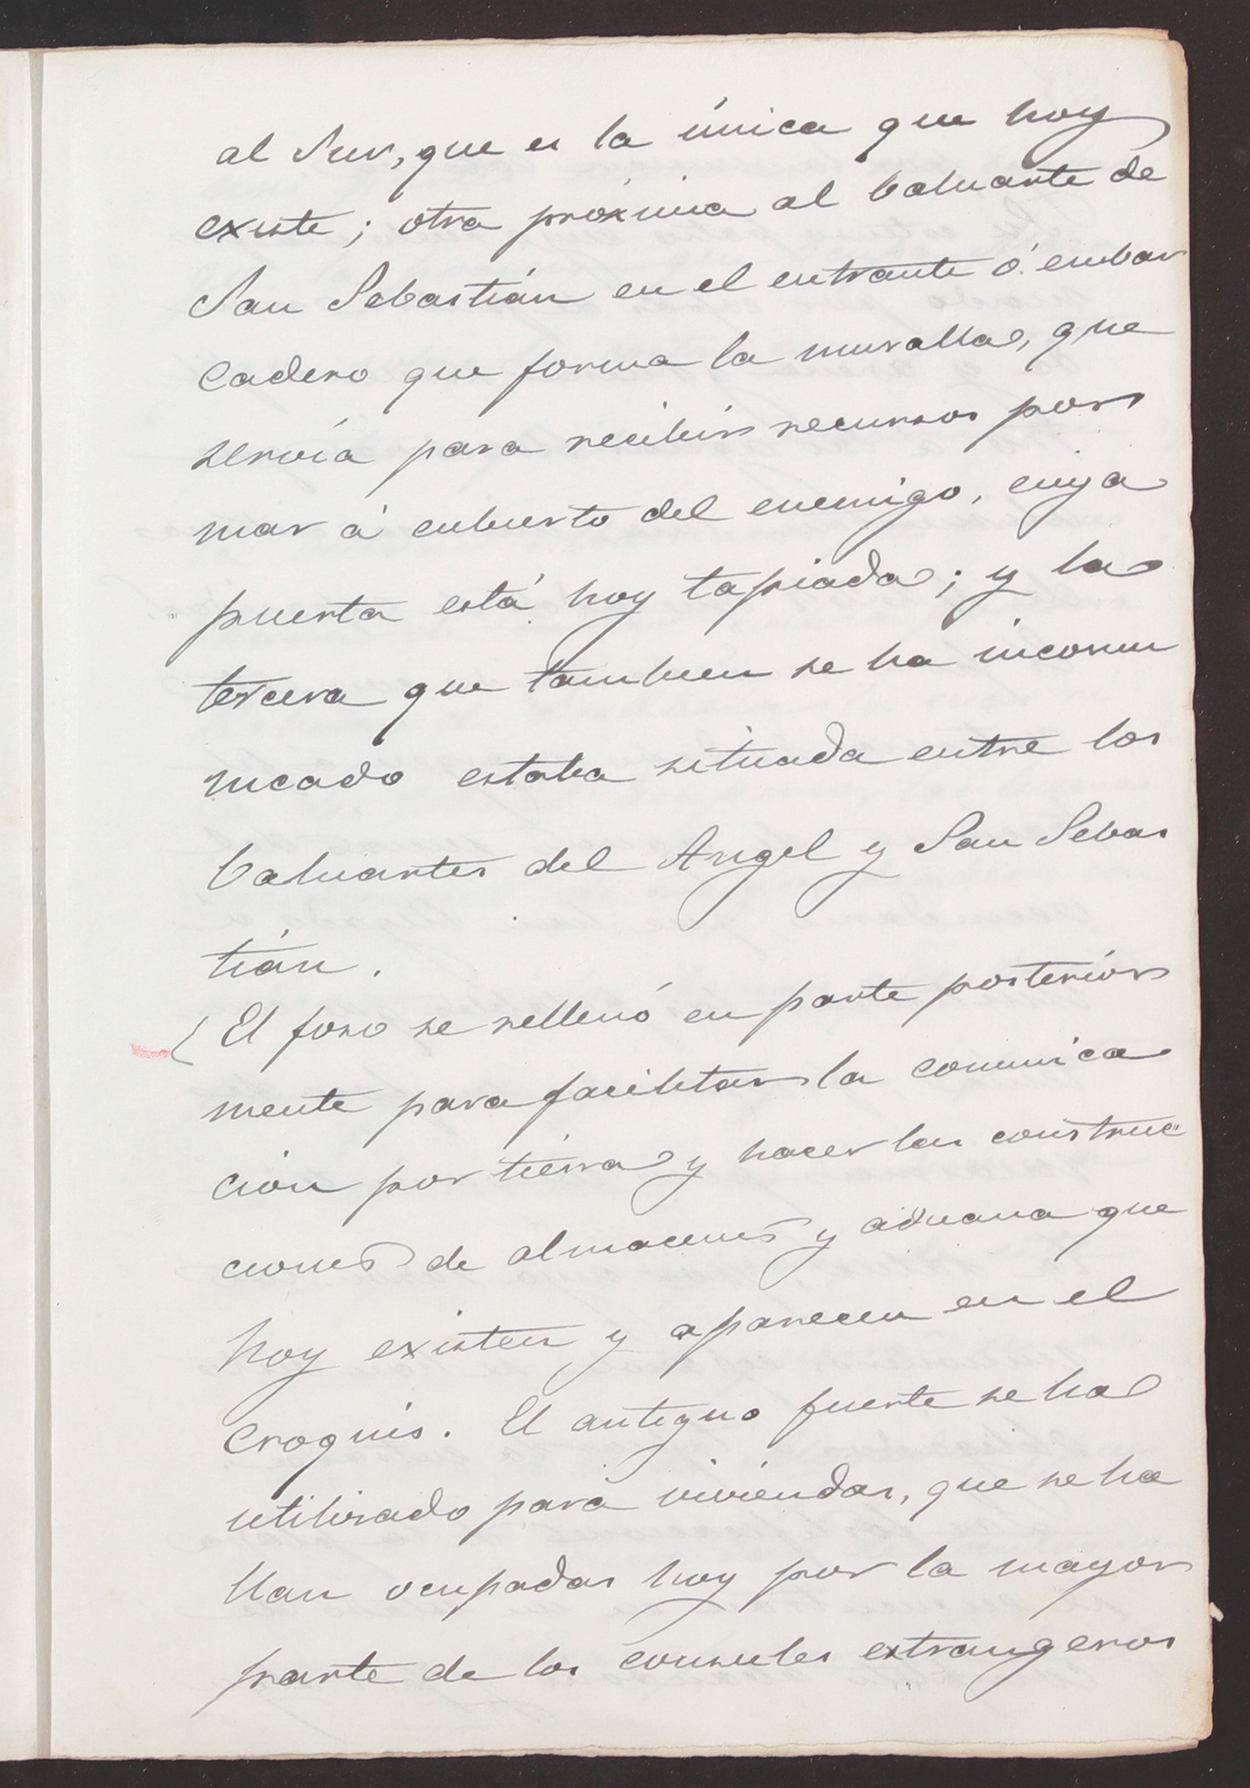 al Sur, que es la única que hoy
existe; otra próxima al baluarte de
San Sebastián en el entrante ó embar
cadero que forma la muralla, que
servía para recibir recursos por
mar á cubierto del enemigo, cuya
puerta está hoy tapiada; y la
tercera que tambien se ha incomu
nicado estaba situada entre los
baluartes del Angel y San Sebas
tián.
El foso se rellenó en parte posterior
mente para facilitar la comunica
ción por tierra y hacer las construc
ciones de almacenes y aduana que
hoy existen y aparecen en el
croquis. El antiguo fuerte se ha
utilizado para viviendas, que se ha
llan ocupadas hoy por la mayor
parte de los consules extrangeros